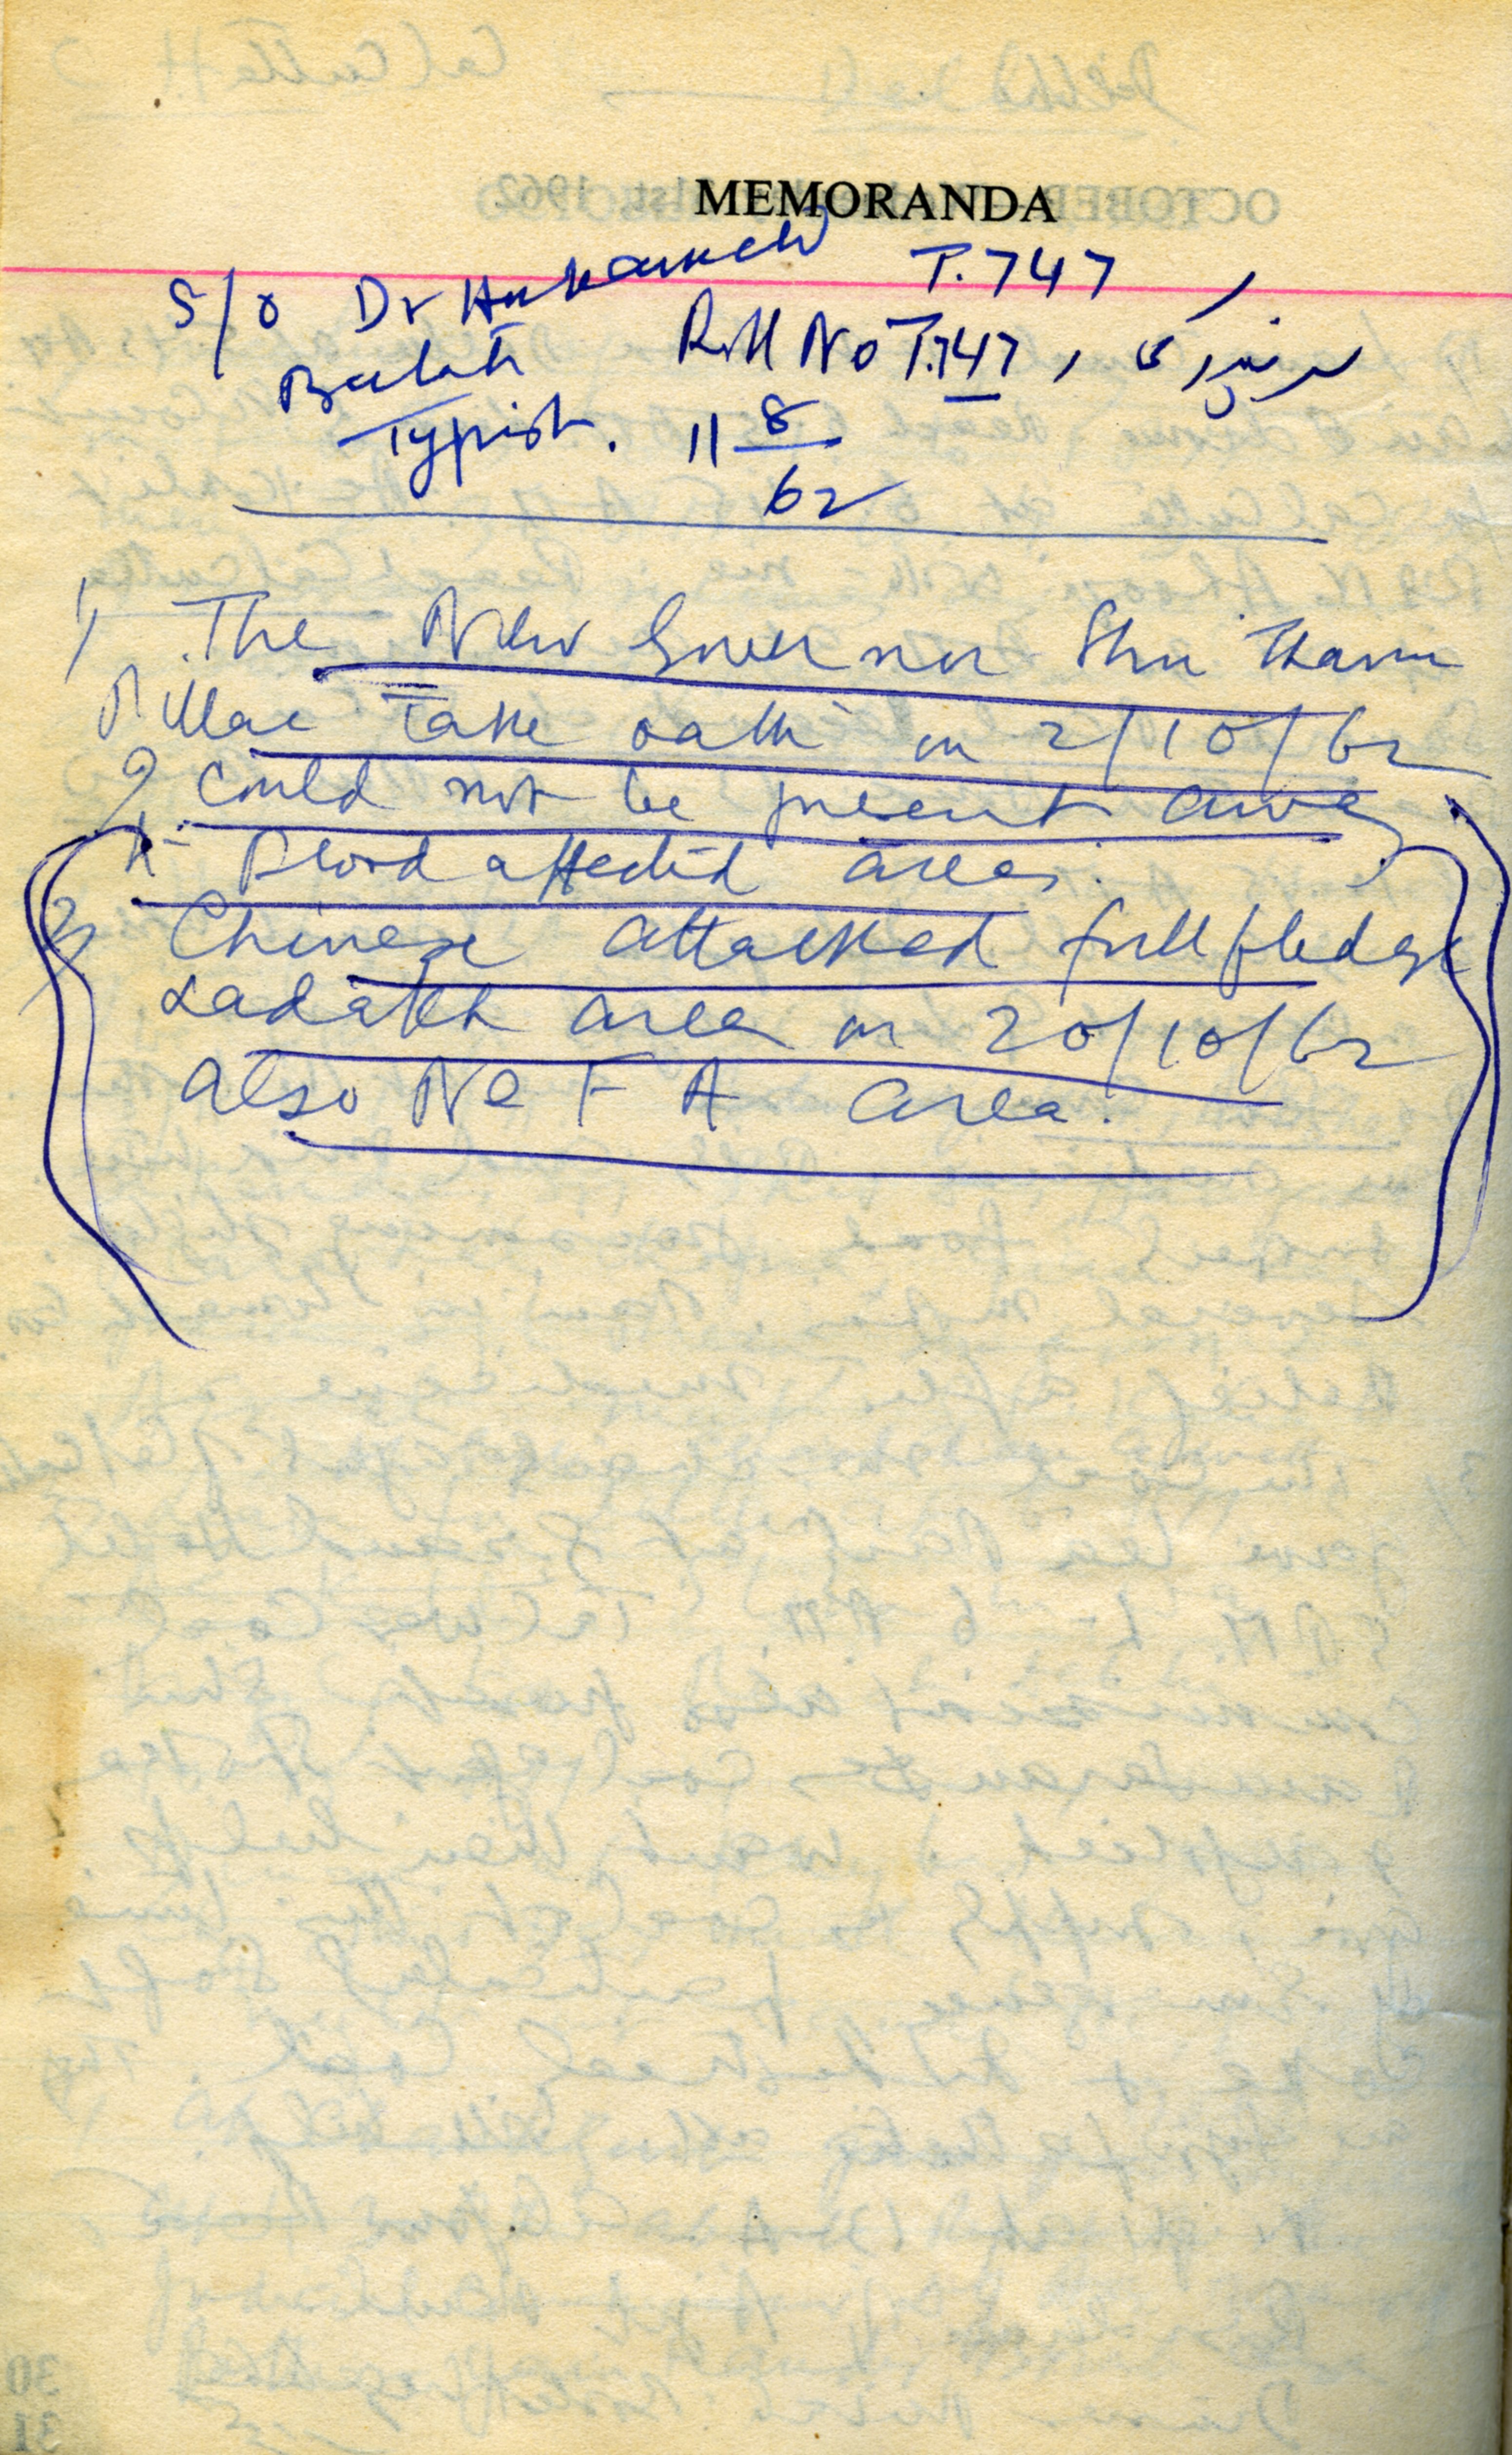 MEMORANDA
S/o Dr T. 747
Roll No T.747,
Typist. 11 8/62
1) The New Governor Shri Thanu
Pillae Take oath on 2/10/62
I could not be present away
to flood affected area.
2) Chinese attacked full fledge
Ladakh area on 20/10/62
also NeFA area.